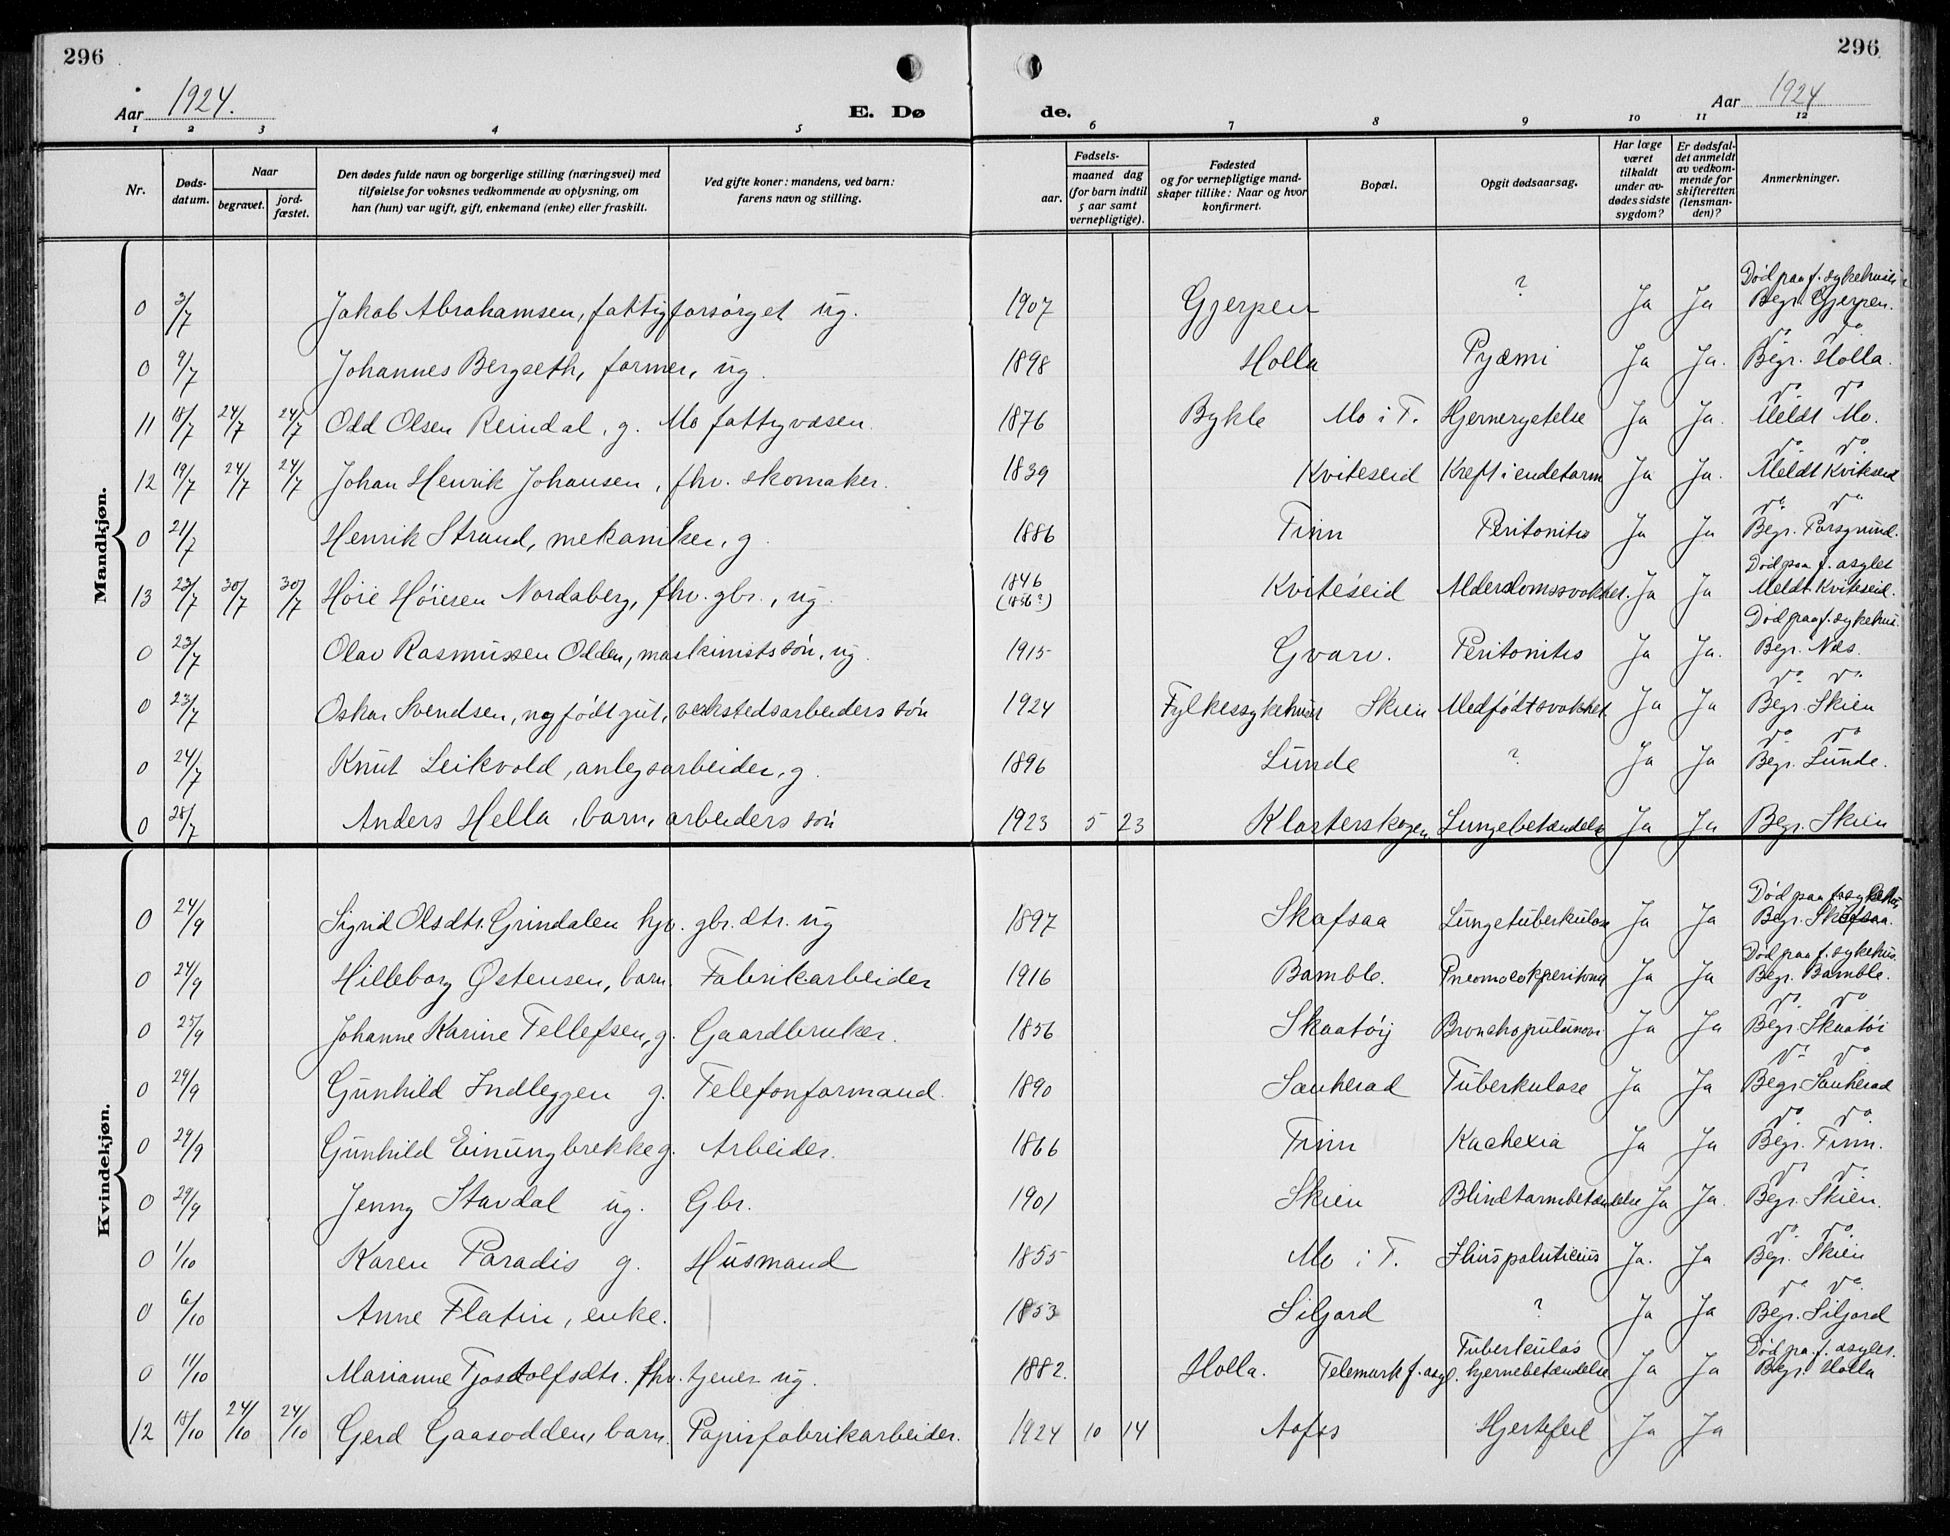 296
296
Aar 1924.
E. Dø
de.
Aar 1924
1 2 3 4 5 6 7 8 9 10 11 12
Nr.
Døds-
datum.
Naar
begravet.
jord-
fæstet.
Den dødes fulde navn og borgerlige stilling (næringsvei) med
tilføielse for voksnes vedkommende av oplysning, om
han (hun) var ugift, gift, enkemand (enke) eller fraskilt.
Ved gifte koner: mandens, ved barn:
farens navn og stilling.
Fødsels-
aar.
maaned dag
(for barn indtil
5 aar samt
vernepligtige).
Fødested
og for vernepligtige mand-
skaper tillike: Naar og hvor
konfirmert.
Bopæl.
Opgit dødsaarsag.
Har læge
været
tilkaldt
under av-
dødes sidste
sygdom?
Er dødsfal-
det anmeldt
av vedkom-
mende for
skifteretten
(lensman-
den)?
Anmerkninger.
Mandkjøn.
0 3/7 Jakob Abrahamsen, fattigforsørget ug. 1907 Gjerpen ? Ja Ja Død paa f. sykehuset
Begr. Gjerpen.
0 9/7 Johannes Bergseth, former, ug. 1898 Holla Pyæmi Ja Ja. do do
Begr. Holla.
11 18/7 24/7 24/7 Odd Olsen Reindal, g. Mo fattigvæsen. 1876 Bykle Mo i T. Hjernerystelse Ja Ja. do do
Meldt Mo.
12 19/7 24/7 24/7 Johan Henrik Johansen, fhv. skomaker. 1839 Kviteseid Kreft i endetarm Ja Ja. do do
Meldt Kviteseid
0 21/7 Henrik Strand, mekaniker, g. 1886 Tinn Peritonitis Ja Ja do do
Begr. Porsgrund.
13 23/7 30/7 30/7 Høie Høiesen Nordaberg, fhv. gbr., ug. 1846
(1856?) Kviteseid Alderdomssvakhet. Ja Ja Død paa f. asylet
Meldt Kviteseid.
0 23/7 Olav Rasmussen Odden, maskinists søn, ug. 1915 Gvarv. Peritonitis Ja Ja. Død paa f. sykehus.
Begr. Nes.
0 23/7 Oskar Svendsen, nyfødt gut, verkstedsarbeiders søn 1924 Fylkessykehuset Skien Medfødt svakhet. Ja Ja do do
Begr. Skien
0 24/7 Knut Leikvold, anlegsarbeider, g. 1896 Lunde ? Ja Ja do do
Begr. Lunde.
0 28/7 Anders Hella, barn, arbeiders søn 1923 5 23 Klosterskogen Lungebetændelse Ja Ja Begr. Skien
Kvindekjøn.
0 24/9 Sigrid Olsdtr. Grindalen hjv. gbr. dtr. ug 1897 Skafsaa Lungetuberkulose Ja Ja Død paa f. sykehus
Begr. Skafsaa.
0 24/9 Hilleborg Østensen, barn. Fabrikarbeider 1916 Bamble. Ja Ja Død paa f. sykehus.
Begr. Bamble.
0 25/9 Johanne Karine Tellefsen, g. Gaardbruker. 1856 Skaatøy Ja Ja do do
Begr. Skaatøi
0 29/9 Gunhild Indleggen g. Telefonformand. 1890 Sauherad Tuberkulose Ja Ja do do
Begr. Sauherad
0 29/9 Gunhild Einungbrekke g. Arbeider. 1866 Tinn Kachexia Ja Ja do do
Begr. Tinn.
0 29/9 Jenny Stavdal ug. Gbr. 1901 Skien Blindtarmbetændelse Ja Ja. do do
Begr. Skien.
0 1/10 Karen Paradis g. Husmand 1855 Mo i T. Ja. Ja do do.
Begr. Skien
0 6/10 Anne Flatin, enke. 1853 Siljord ? Ja Ja do do
Begr. Siljord
0 11/10 Marianne Tjostolfsdtr. fhv. tjener ug. 1882. Holla. Telemark f. asyl. Tuberkuløs
hjernebetændelse Ja Ja Død pa. f. asylet.
Begr. Holla
12 18/10 24/10 24/10 Gerd Gaasodden, barn. Papirfabrikarbeider. 1924 10 14 Aafos Hjertefeil Ja Ja